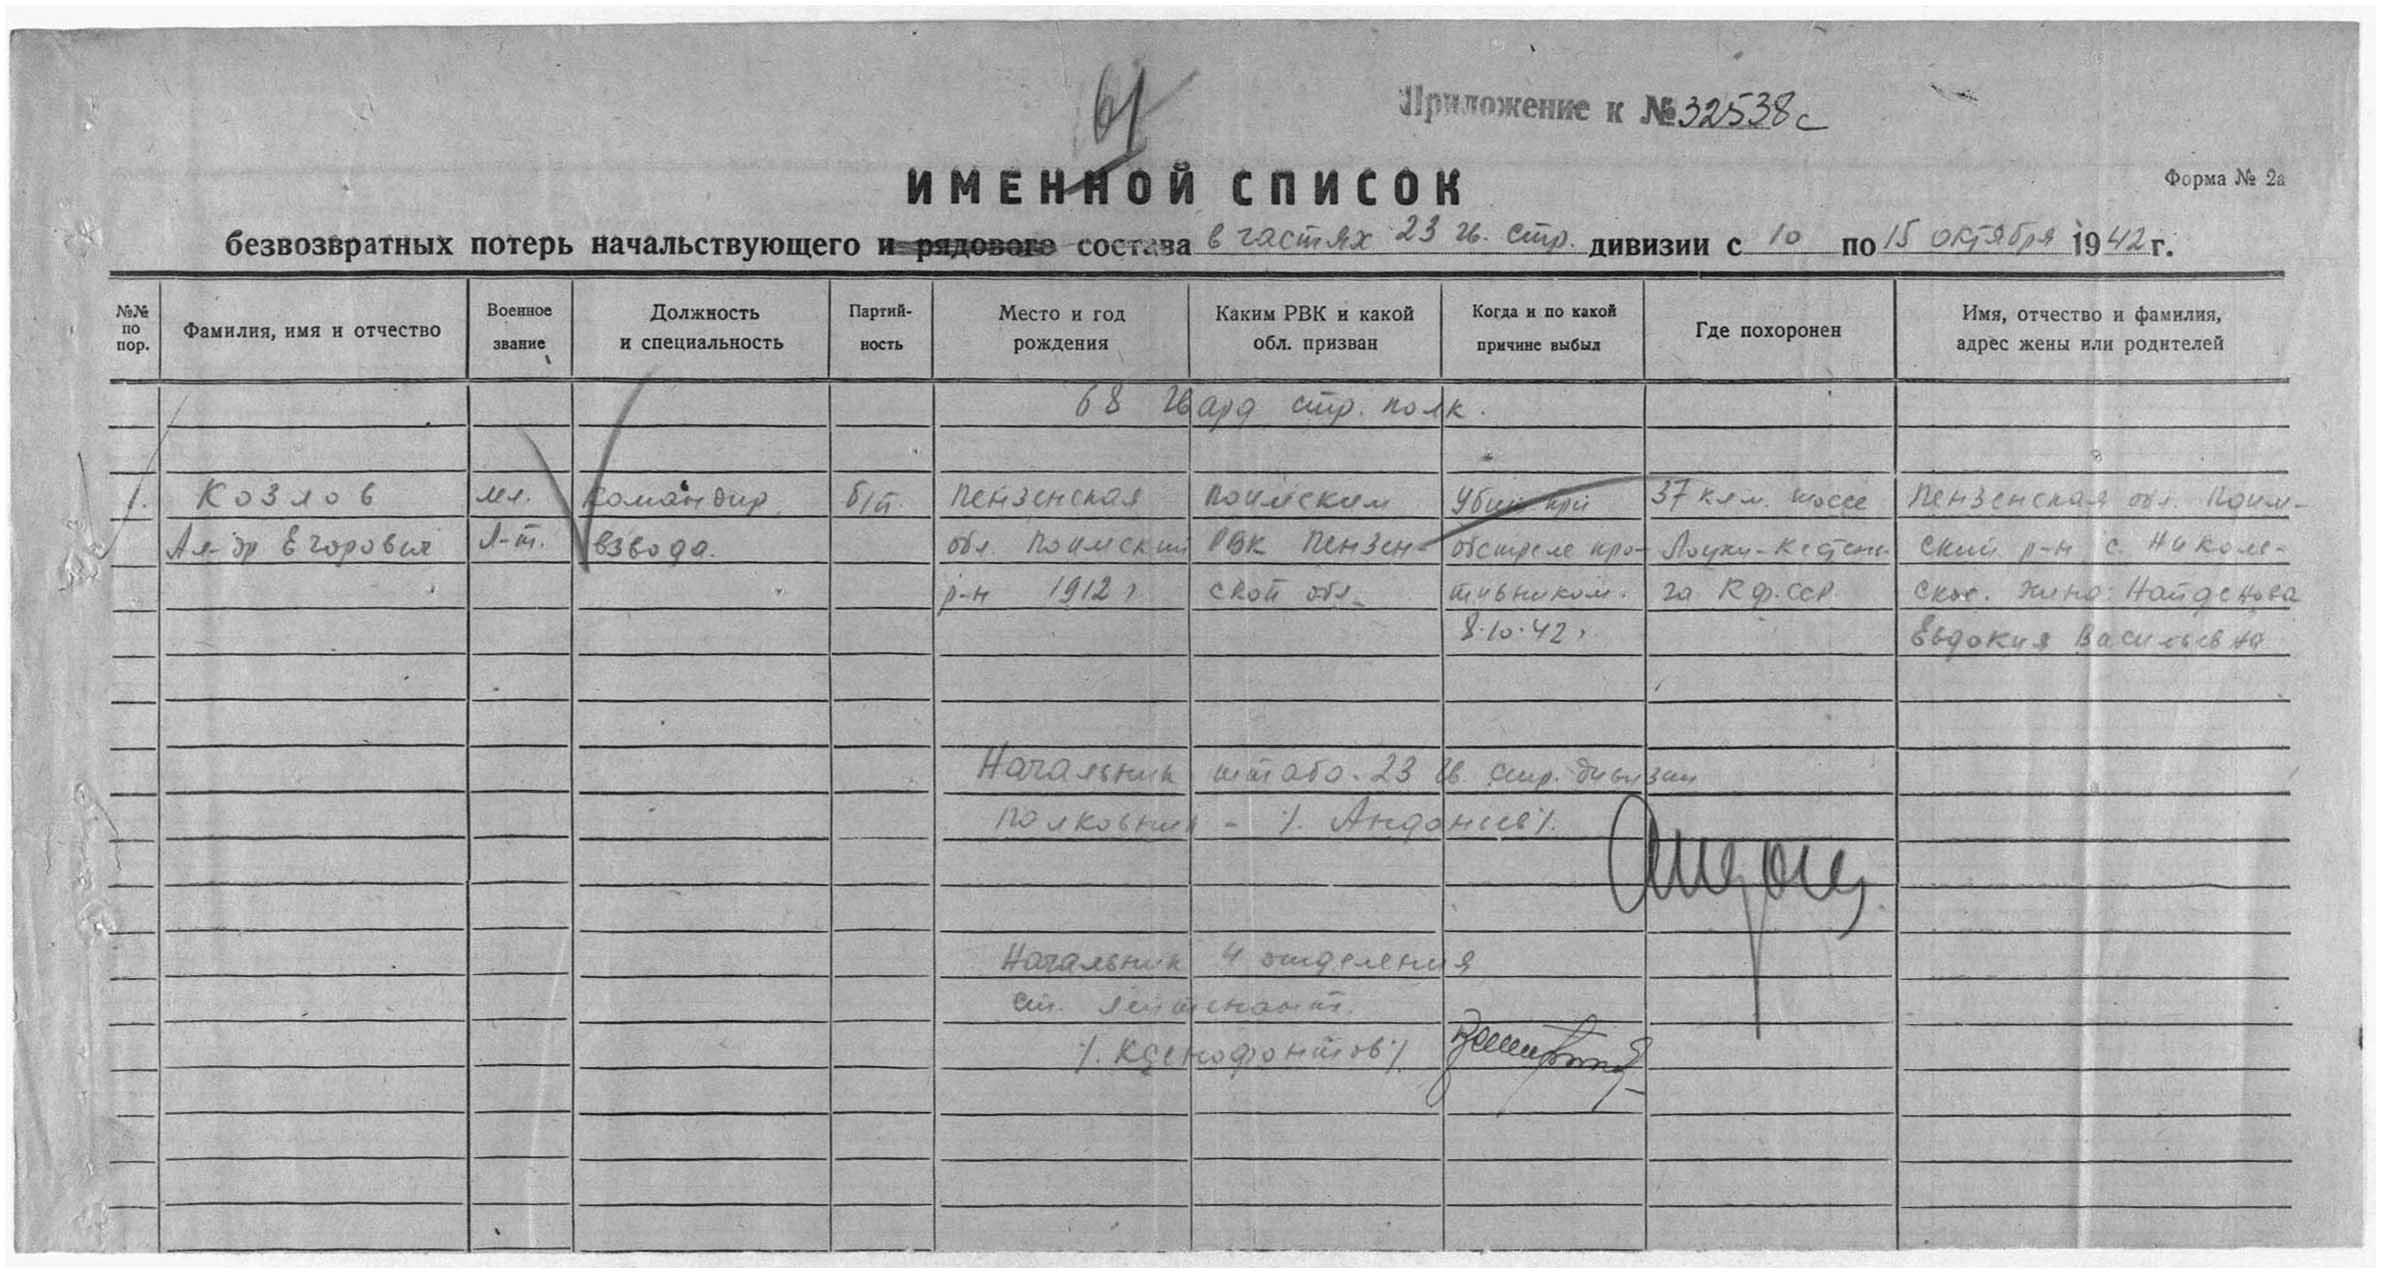 61
Приложение к № 32538с
ИМЕННОЙ СПИСОК
Форма № 2а
безвозвратных потерь начальствующего и рядового состава в частях 23 гв. стр. дивизии с 10 по 15 октября 1942 г.
№№ по пор.
Фамилия, имя и отчество
Военное звание
Должность и специальность
Партий-ность
Место и год рождения
Каким РВК и какой обл. призван
Когда и по какой причине выбыл
Где похоронен
Имя, отчество и фамилия, адрес жены или родителей
68 гвард стр. полк.
1. Козлов мл. командир б/п. Пензенская Поимским Убит при 37 клм. шоссе Пензенская обл. Поим-
Ал-др Егорович л-т. взвода. обл. Поимский РВК Пензен- обстреле про- Лоухи-Кестень- ский р-н с. Николь-
р-н 1912 г ской обл. тивником. га К.ф.ССР. ское. жена: Найденова
8.10.42 г. Евдокия Васильевна
Начальник штаба 23 гв. стр. дивизии
полковник - /. Андонцев /.
Начальник 4 отделения
ст. лейтенант.
/. Ксенофонтов /.